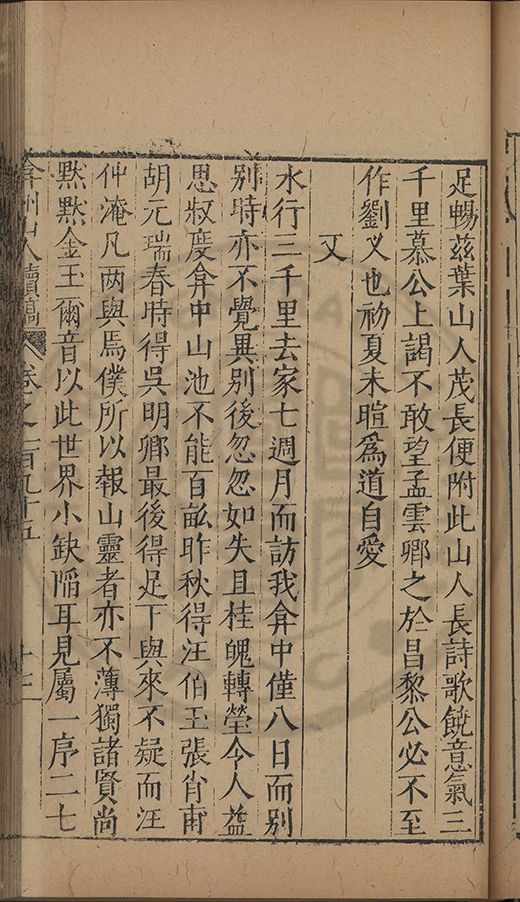 足暢茲葉山人茂長便附此山人長詩歌饒意氣三
千里慕公上謁不敢望孟雲卿之於昌黎公必不至
作劉乂也初夏未暄爲道自愛
又
水行三千里去家七週月而訪我弇中僅八日而別
別時亦不覺異別後忽忽如失且桂魄轉瑩令人益
思叔度弇中山池不能百畝昨秋得汪伯玉張肖甫
胡元瑞春時得吳明卿最後得足下與來不疑而汪
仲淹凡两與焉僕所以報山靈者亦不薄獨諸賢尚
默默金玉爾音以此世界小缺陷耳見屬一序二七
弇州山人續稿 卷之一百九十五 十三